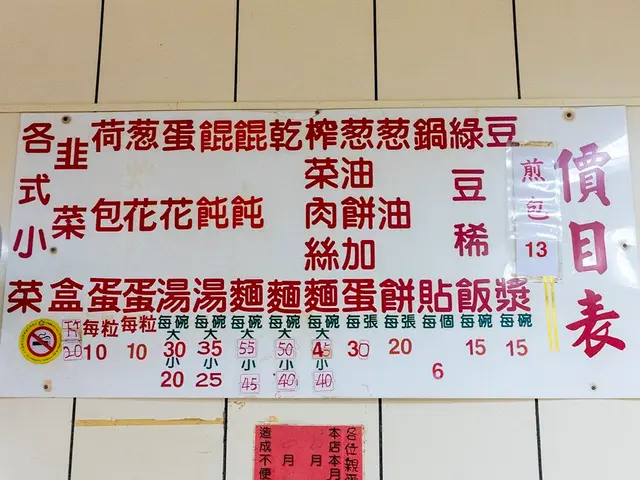 價目表
煎包 13
豆漿 每碗 15
綠豆稀飯 每碗 15
鍋貼 每個 6
葱油餅 每張 20
葱油餅加蛋 每張 30
榨菜肉絲麵 每碗 大 45 小 40
乾麵 每碗 大 50 小 40
餛飩麵 每碗 大 55 小 45
餛飩湯 每碗 大 35 小 25
蛋花湯 每碗 大 30 小 20
葱花蛋 每粒 10
荷包蛋 每粒 10
韭菜盒
各式小菜
各位親
本店本月
月
月
造成不便